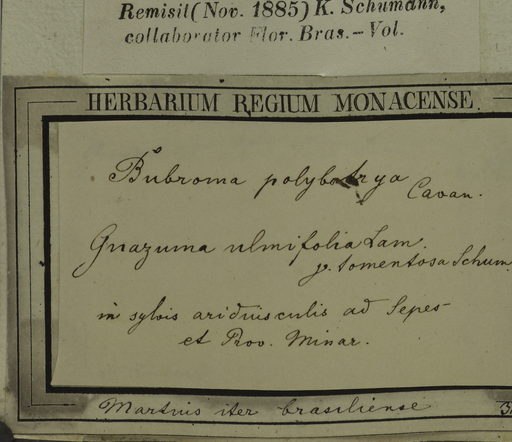 Remisit (Nov. 1885) K. Schumann,
collaborator Flor. Bras. – Vol.
HERBARIUM REGIUM MONACENSE.
Bubroma polybotrya Cavan.
Guazuma ulmifolia Lam.
γ. tomentosa Schum.
in sylvis ariduisculis ad Sepes
et Prov. Minar.
Martius iter brasiliense